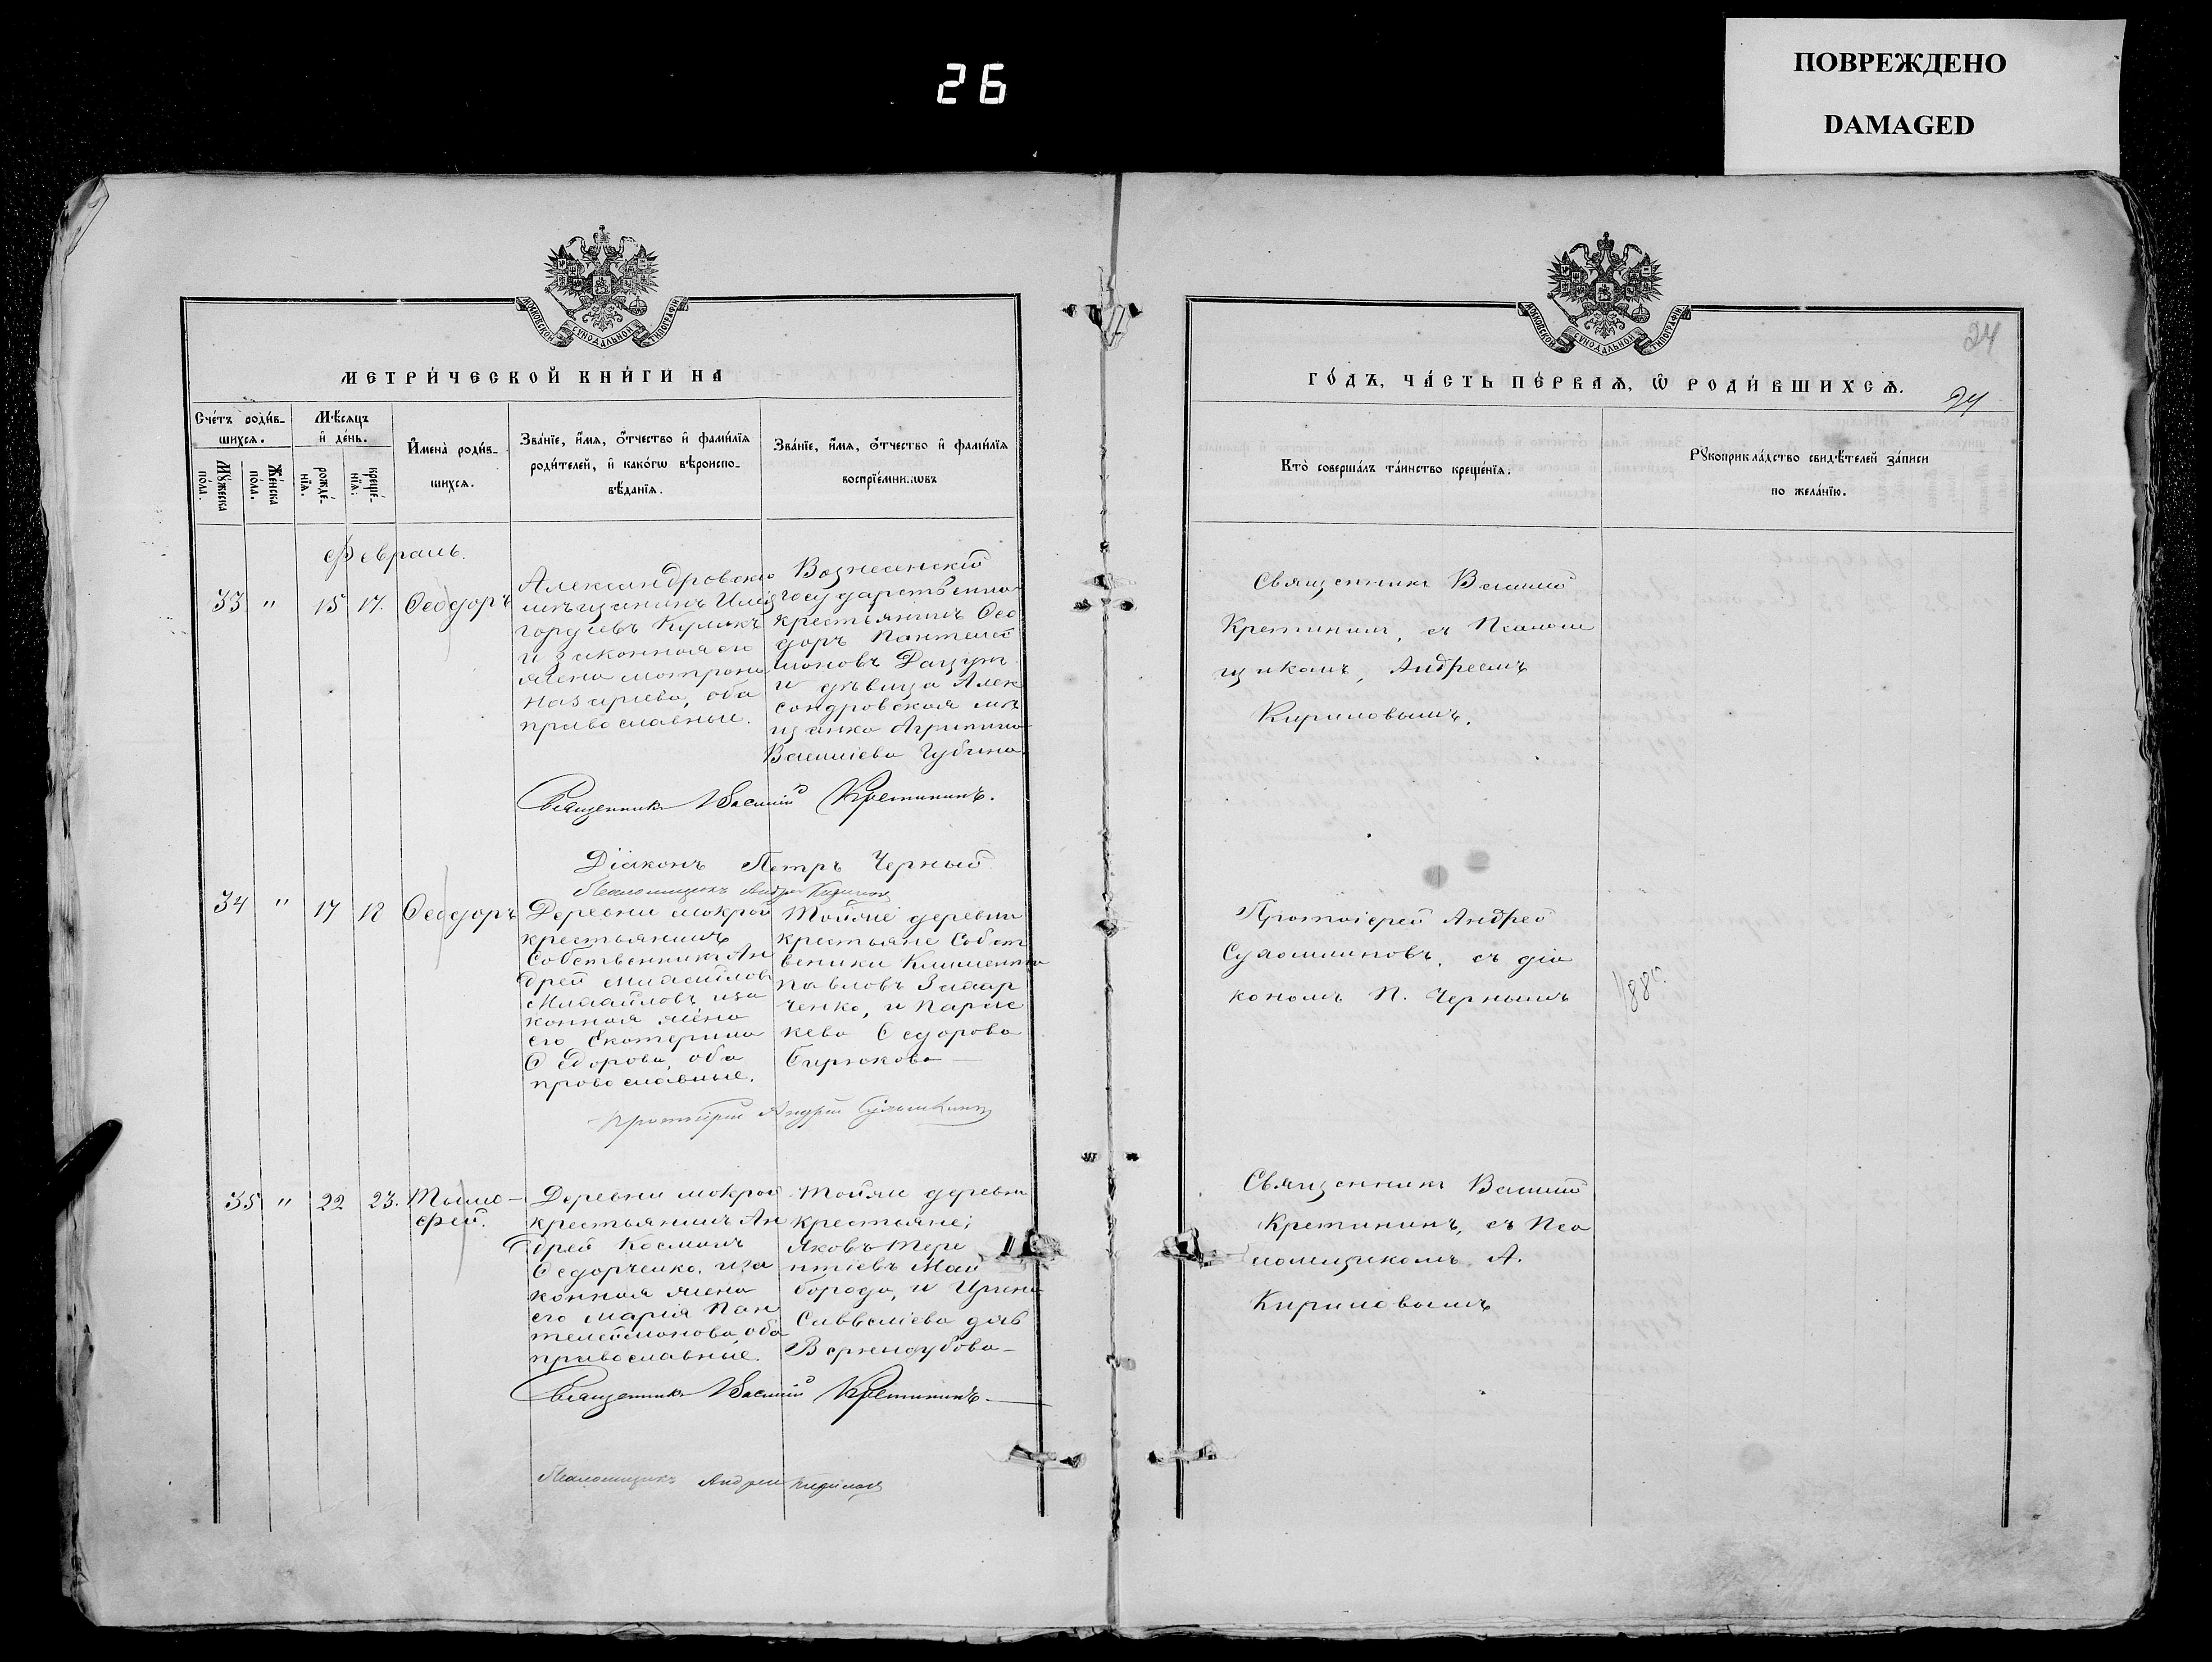 26
ПОВРЕЖДЕНО
DAMAGED
МОСКОВСКОЙ СѴНОДАЛЬНОЙ ТИПОГРАФІИ
МЕТРИ́ЧЕСКОЙ КНИ́ГИ НА
Сче́тъ роди́в-
шихся.
Мѣ́сяцъ
и҆ де́нь.
Мꙋ́жеска
по́ла.
Же́нска
по́ла.
рожде́-
нїя.
креще́-
нїя.
И҆мена̀ роди́в-
шихся.
Зва́нїе, и҆́мя, ѻ҆́тчество и҆ фами́лїя
роди́телей, и҆ како́гѡ вѣроиспо-
вѣ́данїя.
Зва́нїе, и҆́мя, ѻ҆́тчество и҆ фами́лїя
воспрїе́мниковъ
Февраль.
33 " 15 17. Ѳеодоръ
Александровскій
мѣщанинъ
Куликъ
и законная его
жена Мотрона
Назарьева, оба
православные.
Вознесенскій
государственный
крестьянинъ Ѳео
доръ Пантелей
моновъ
и дѣвица Алек
сандровская мѣ
щанка Агрипина
Василіева Губина
Священникъ Василій Кретининъ.
Діаконъ Петръ Черный
Псаломщикъ Андрей Кириловъ
34 " 17 18 Ѳеодоръ
Деревни Мокрой
крестьянинъ
собственникъ Ан
дрей Михайловъ
Михайловъ иза
конная жена
его Екатерина
Ѳедорова, оба
православные.
Тойже деревни
крестьяне Собст
веники Климентій
Павловъ
ченко, и Парас
кева Ѳедорова
Бирюкова
Протоіерей Андрей
35 " 22 23. Тымо-
фей.
Деревни Мокрой
крестьянинъ Ан
дрей Косминъ
Ѳедорченко, иза
конная жена
его Марія Пан
телеймонова, оба
православные.
Тойже деревни
крестьяне;
Яковъ Тере
нтіевъ Май
борода, и Ирина
Савельева дѣв
Священникъ Василій Кретининъ
Псаломщикъ Андрей Кириловъ
МОСКОВСКОЙ СѴНОДАЛЬНОЙ ТИПОГРАФІИ
24
ГО́ДЪ, ЧА́СТЬ ПЕ́РВАЯ, Ѡ҆ РОДИ́ВШИХСЯ.
24
Кто̀ соверша́лъ та́инство креще́нїя.
Рꙋкоприкла́дство свидѣ́телей за́писи
по жела́нїю.
Священникъ Василій
Кретининъ, съ Псалом
щикомъ, Андреемъ
Кириловымъ.
Протоіерей Андрей
съ діа
кономъ П. Чернымъ
Священникъ Василій
Кретининъ, съ Пса
ломщикомъ А.
Кириловымъ